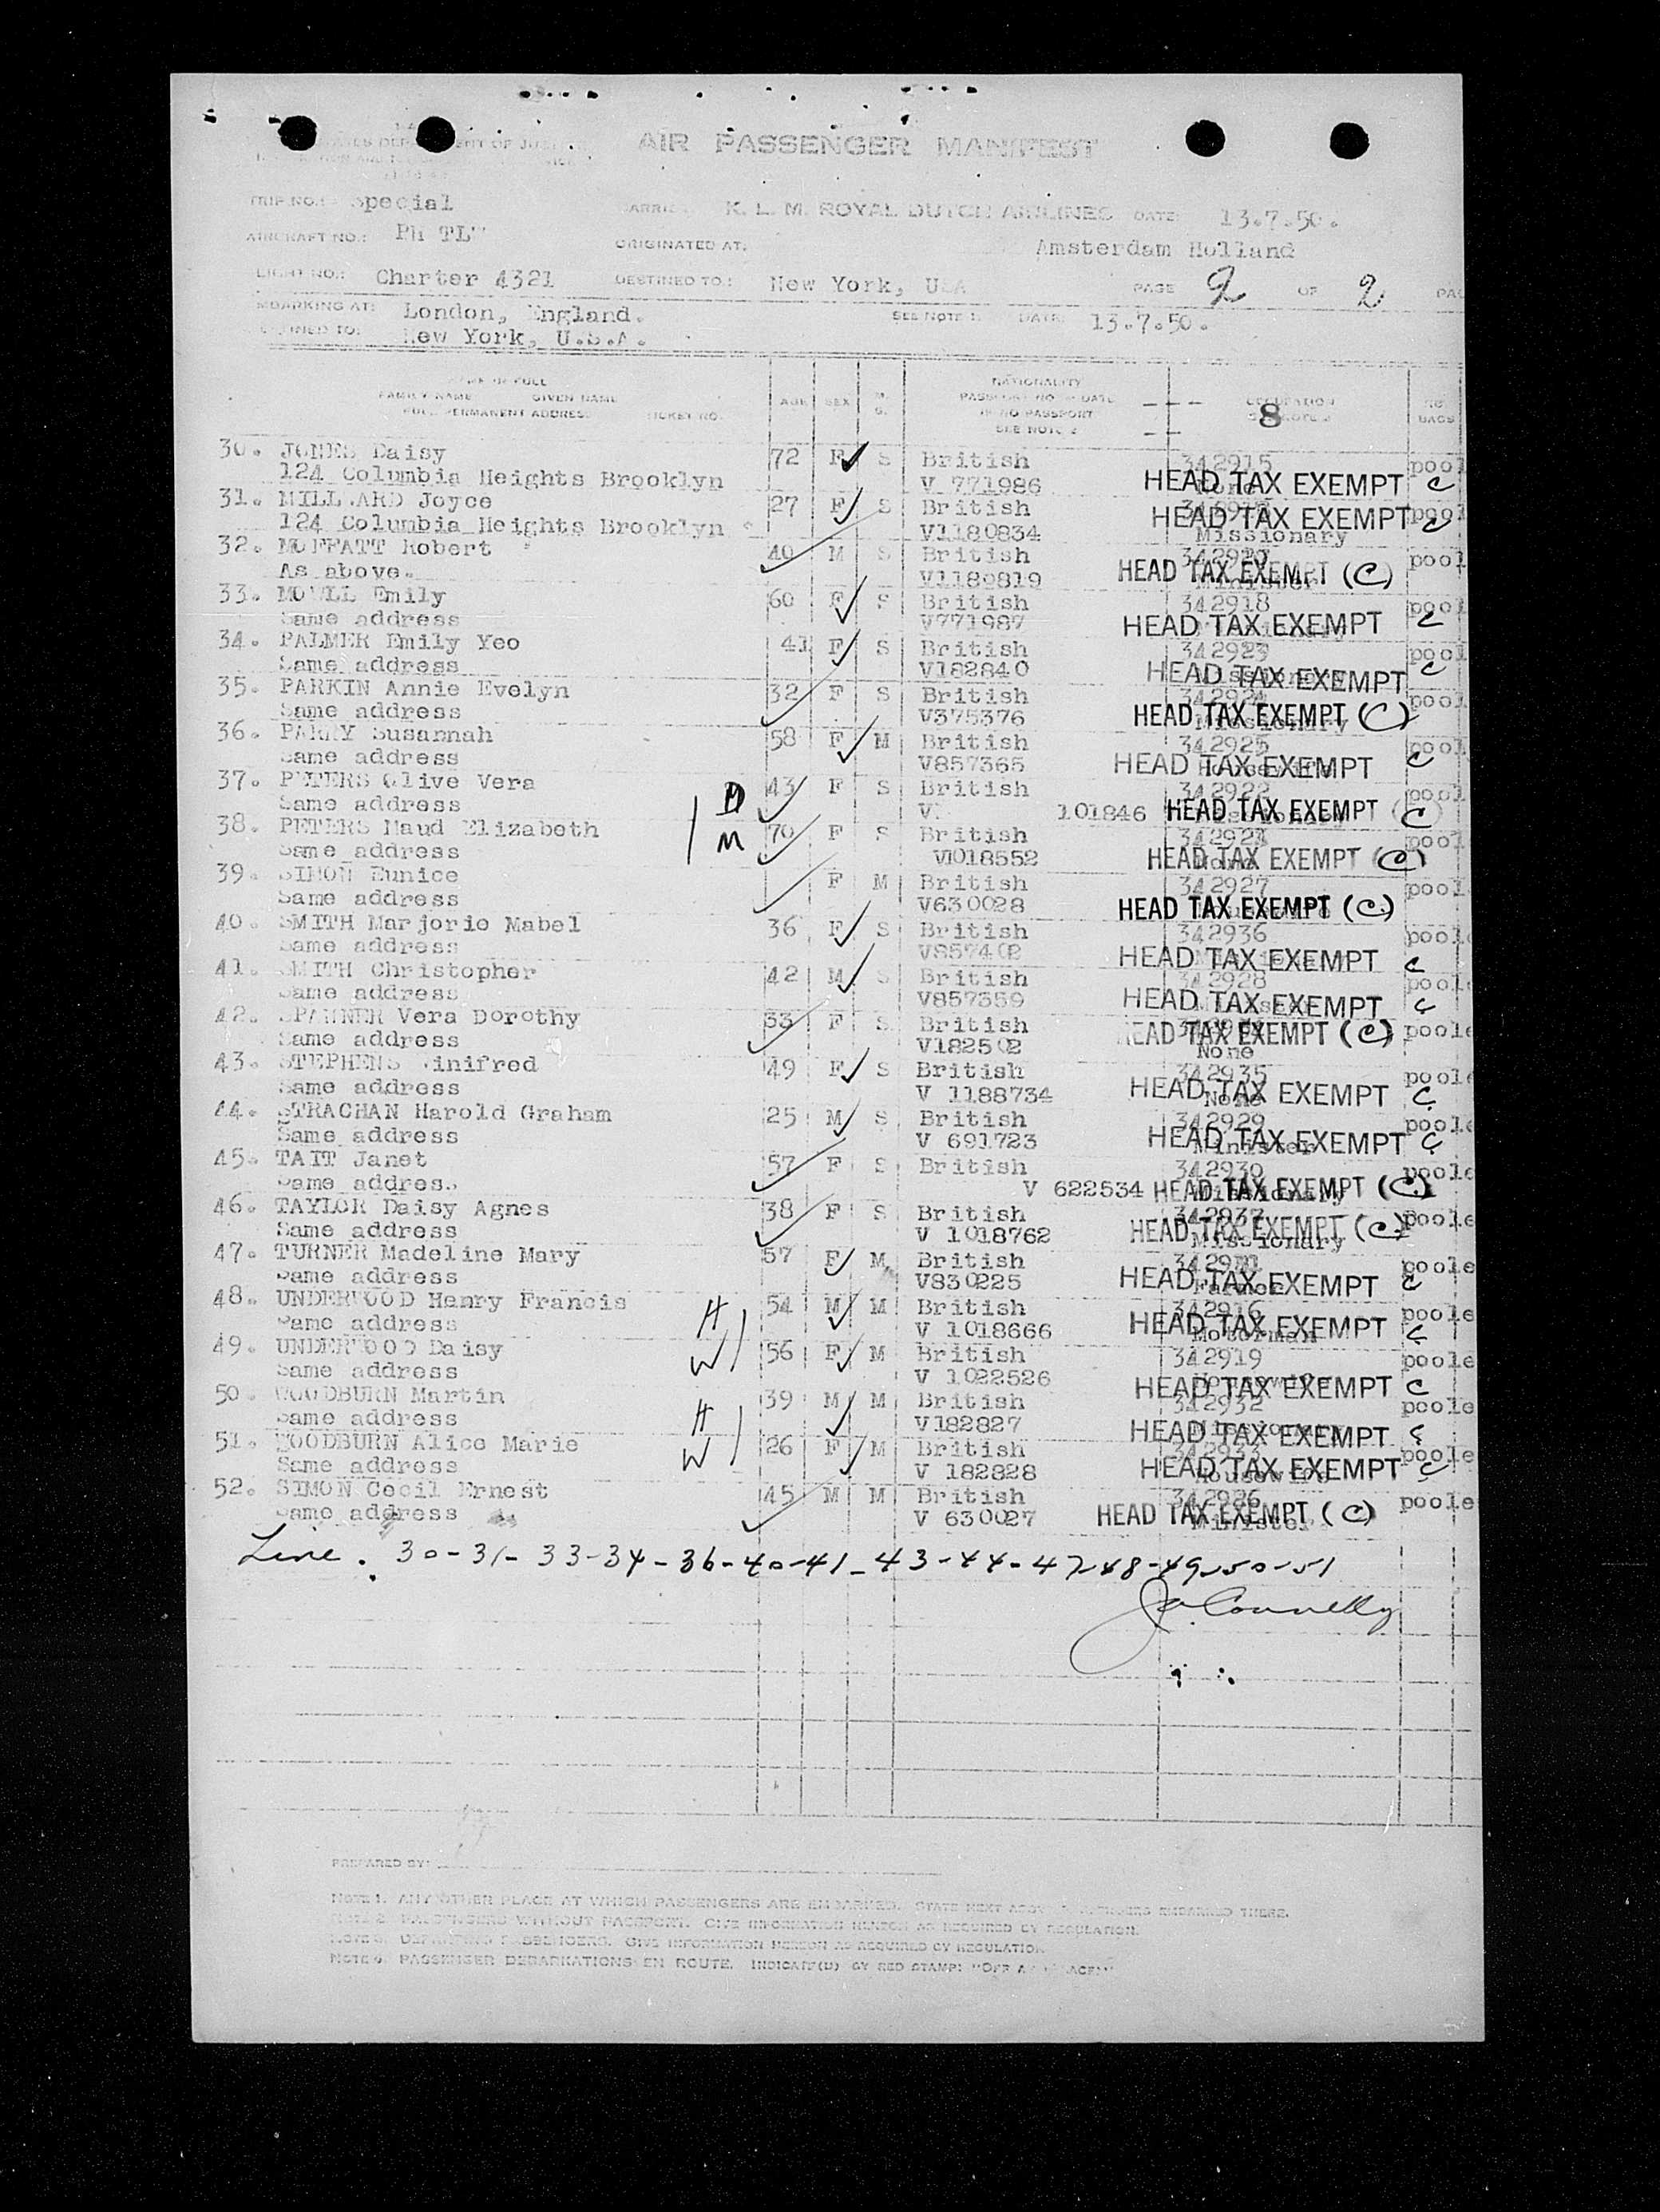 AIR PASSENGER MANIFEST
TRIP NO.: Special K. L. M. ROYAL DUTCH AIRLINES DATE: 13.7.50.
AIRCRAFT NO.: Ph TL ORIGINATED AT: Amsterdam Holland
Charter 4321 DESTINED TO: New York, PAGE 2 OF 2
London, England. SEE NOTE 1. DATE: 13.7.50.
New York, U.S.A.
NATIONALITY
FAMILY NAME GIVEN NAME AGE SEX
PERMANENT ADDRESS TICKET NO. IF NO PASSPORT 8 BAGS
SEE NOTE 2
30. JONES Daisy 72 F S British 342915
124 Columbia Heights Brooklyn V 771986 HEAD TAX EXEMPT C
31. Joyce 27 F S British
124 Columbia Heights Brooklyn V1180834 HEAD TAX EXEMPT C Missionary
32. MOFFATT Robert 40 M S British pool
As above. V1180819 HEAD TAX EXEMPT (C)
33. Emily 60 F S British 342918 pool
Same address V771987 HEAD TAX EXEMPT C
34. PALMER Emily Yeo 41 F S British pool
Same address V182840 HEAD TAX EXEMPT C
35. PARKIN Annie Evelyn 32 F S British pool
Same address V375376 HEAD TAX EXEMPT (C)
36. PARRY Susannah 58 F M British 342925 pool
Same address V857365 HEAD TAX EXEMPT C
37. PETERS Olive Vera D 43 F S British 342922 pool
Same address V 101846 HEAD TAX EXEMPT (C)
38. PETERS Maud Elizabeth M 70 F S British pool
Same address V1018552 HEAD TAX EXEMPT (C)
39. SIMON Eunice F M British 342927 pool
Same address V630028 HEAD TAX EXEMPT (C)
40. SMITH Marjorie Mabel 36 F S British 342936 poole
Same address V857402 HEAD TAX EXEMPT C
41. SMITH Christopher 42 M S British 342928 poole
Same address V857359 HEAD TAX EXEMPT C
42. Vera Dorothy 33 F S British poole
Same address V182502 HEAD TAX EXEMPT (C) None
43. STEPHENS Winifred 49 F S British 342935 poole
Same address V 1188734 HEAD TAX EXEMPT C None
44. STRACHAN Harold Graham 25 M S British 342929 poole
Same address V 691723 HEAD TAX EXEMPT C Minister
45. TAIT Janet 57 F S British 342930 poole
Same address V 622534 HEAD TAX EXEMPT (C) Missionary
46. TAYLOR Daisy Agnes 38 F S British 342937 poole
Same address V 1018762 HEAD TAX EXEMPT (C) Missionary
47. TURNER Madeline Mary 57 F M British poole
Same address V830225 HEAD TAX EXEMPT C
48. UNDERWOOD Henry Francis H 54 M M British 342916 poole
Same address V 1018666 HEAD TAX EXEMPT C Motorman
49. UNDERWOOD Daisy W 56 F M British 342919 poole
Same address V 1022526 HEAD TAX EXEMPT C
50. WOODBURN Martin H 39 M M British 342932 poole
Same address V182827 HEAD TAX EXEMPT C
51. WOODBURN Alice Marie W 26 F M British 342933 poole
Same address V 182828 HEAD TAX EXEMPT C Housewife
52. SIMON Cecil Ernest 45 M M British 342926 poole
Same address V 630027 HEAD TAX EXEMPT (C) Minister
Line. 30-31-33-34-36-40-41-43-44-47-48-49-50-51
J Connelly
PREPARED BY:
NOTE 1. ANY OTHER PLACE AT WHICH PASSENGERS ARE EMBARKED. STATE NEXT EMBARKED THERE.
NOTE 2. PASSENGERS WITHOUT PASSPORT. GIVE INFORMATION HEREON AS REQUIRED BY REGULATION.
NOTE 3. DEPARTING PASSENGERS. GIVE INFORMATION HEREON AS REQUIRED BY REGULATION.
NOTE 4. PASSENGER DEBARKATIONS EN ROUTE. INDICATE(D) BY RED STAMP: